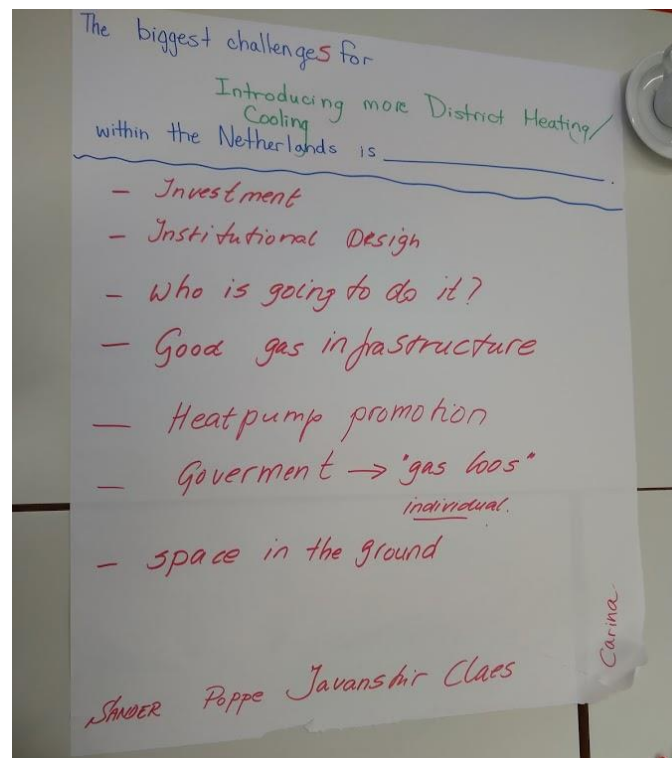 The biggest challenges for
Introducing more District Heating/
Cooling
within the Netherlands is ____________.
- Investment
- Institutional Design
- Who is going to do it?
- Good gas infrastructure
- Heatpump promotion
- Goverment → "gas loos"
individual.
- space in the ground
Carina
SANDER Poppe Javanshir Claes